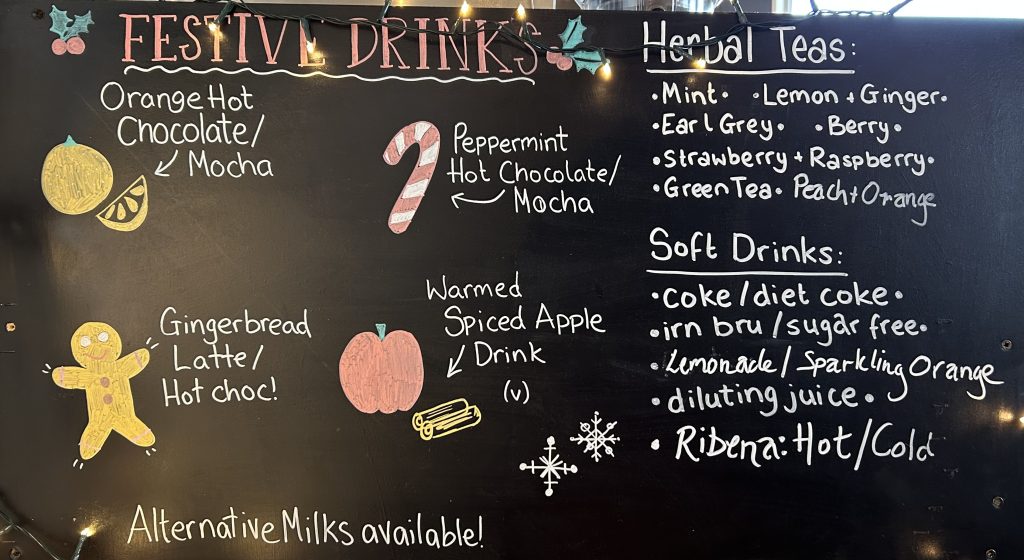 FESTIVE DRINKS
Orange Hot
Chocolate/
Mocha
Peppermint
Hot Chocolate/
Mocha
Gingerbread
Latte/
Hot choc!
Warmed
Spiced Apple
Drink
(v)
Alternative Milks available!
Herbal Teas:
•Mint• •Lemon + Ginger•
•Earl Grey• •Berry•
•Strawberry + Raspberry•
•Green Tea• Peach + Orange
Soft Drinks:
•coke/diet coke•
•irn bru/sugar free•
•Lemonade/Sparkling Orange
•diluting juice•
•Ribena: Hot/Cold